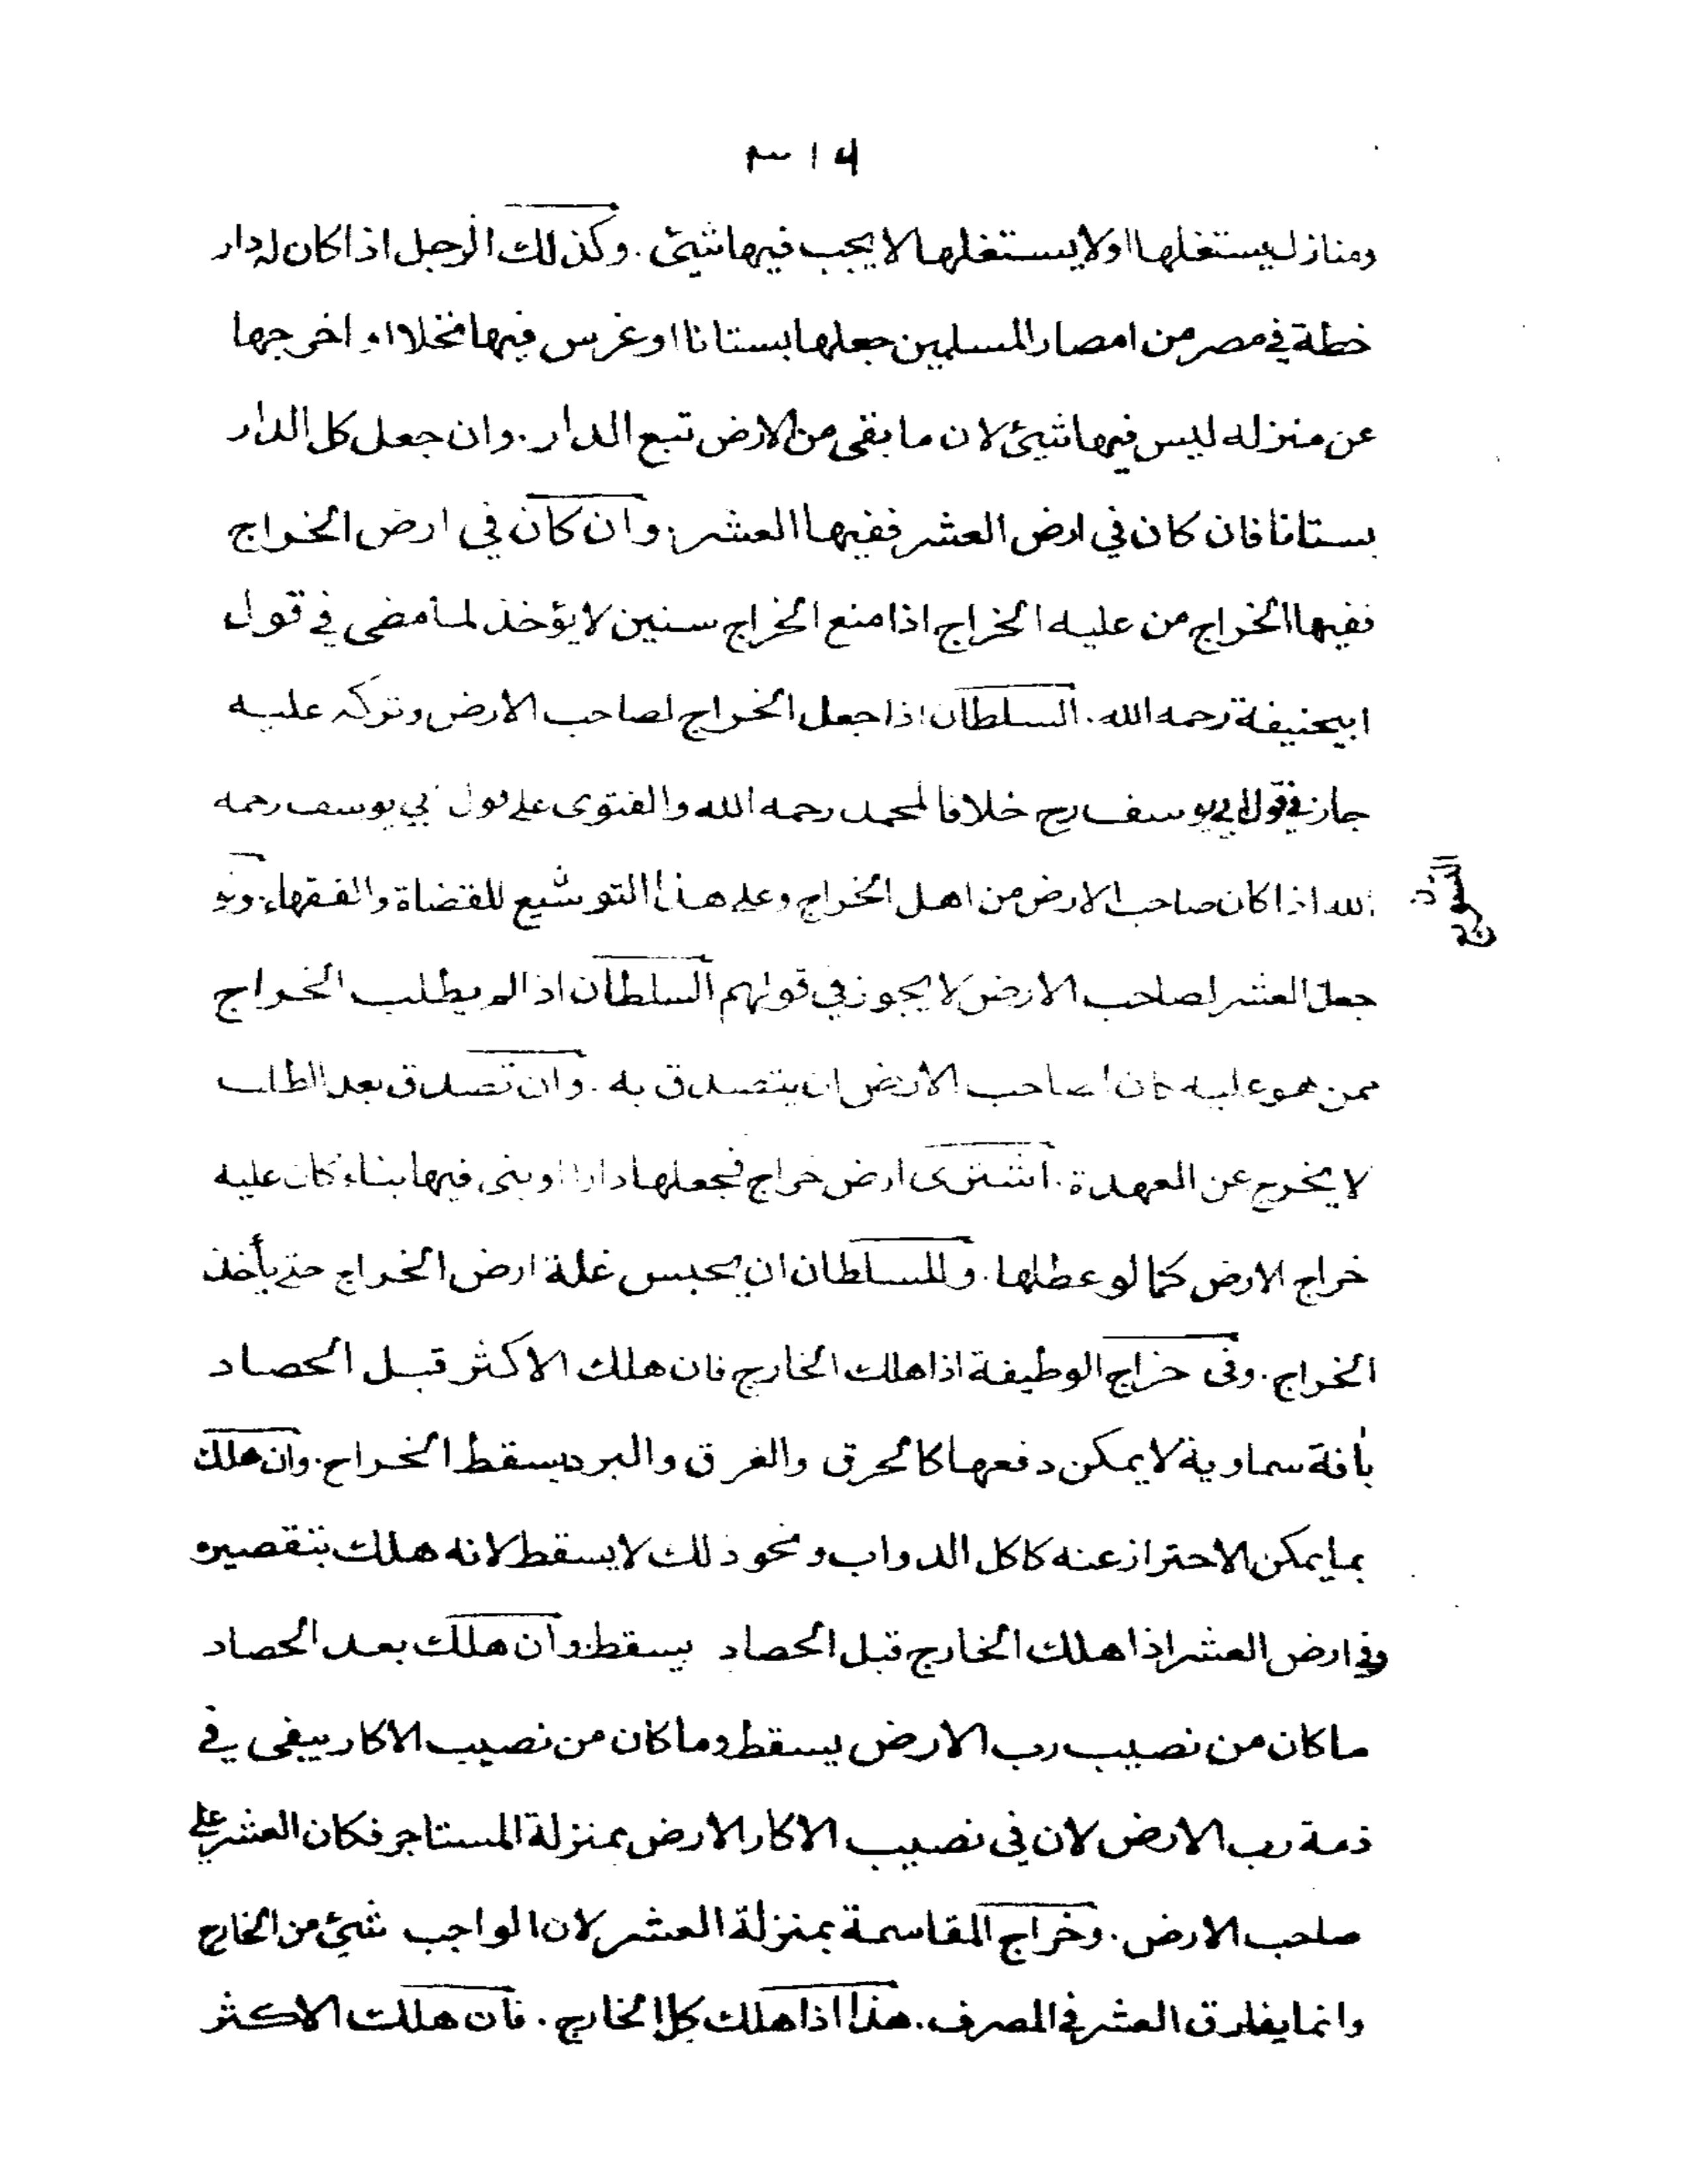 ٣١٤
ومنازل يستغلها او لا يستغلها لا يجب فيها شيئ. وكذلك الرجل اذا كان له دار
خطة في مصر من امصار المسلمين جعلها بستانا او غرس فيها نخلا او اخرجها
عن منزله ليس فيها شيئ لان ما بقى من الارض تبع الدار. وان جعل كل الدار
بستانا فان كان في ارض العشر ففيها العشر. وان كان في ارض الخراج
ففيها الخراج من عليه الخراج اذا منع الخراج سنين لا يؤخذ لما مضى في قول
ابيحنيفة رحمه الله. السلطان اذا جعل الخراج لصاحب الارض وتركه عليه
جاز في قول ابي يوسف رح خلافا لمحمد رحمه الله والفتوى على قول ابي يوسف رحمه
الله اذا كان صاحب الارض من اهل الخراج وعلى هذا التوشيع للقضاة والفقهاء. ولو
جعل العشر لصاحب الارض لا يجوز في قولهم السلطان اذا لم يطلب الخراج
ممن هو عليه كان لصاحب الارض ان يتصدق به. وان تصدق بعد الطلب
لا يخرج عن العهدة. اشترى ارض خراج فجعلها دارا او بنى فيها بناء كان عليه
خراج الارض كما لو عطلها. وللسلطان ان يحبس غلة ارض الخراج حتى يأخذ
الخراج. وفى خراج الوظيفة اذا هلك الخارج فان هلك الاكثر قبل الحصاد
بأفة سماوية لا يمكن دفعها كالحرق والغرق والبرد يسقط الخراج. وان هلك
بما يمكن الاحتراز عنه كاكل الدواب ونحو ذلك لا يسقط لانه هلك بتقصيره
وفي ارض العشر اذا هلك الخارج قبل الحصاد يسقط. وان هلك بعد الحصاد
ما كان من نصيب رب الارض يسقط وما كان من نصيب الاكار يبقى في
ذمة رب الارض لان في نصيب الاكار الارض بمنزلة المستاجر فكان العشر على
صاحب الارض. وخراج المقاسمة بمنزلة العشر لان الواجب شيئ من الخارج
وانما يفارق العشر في المصرف. هذا اذا هلك كل الخارج. فان هلك الاكثر